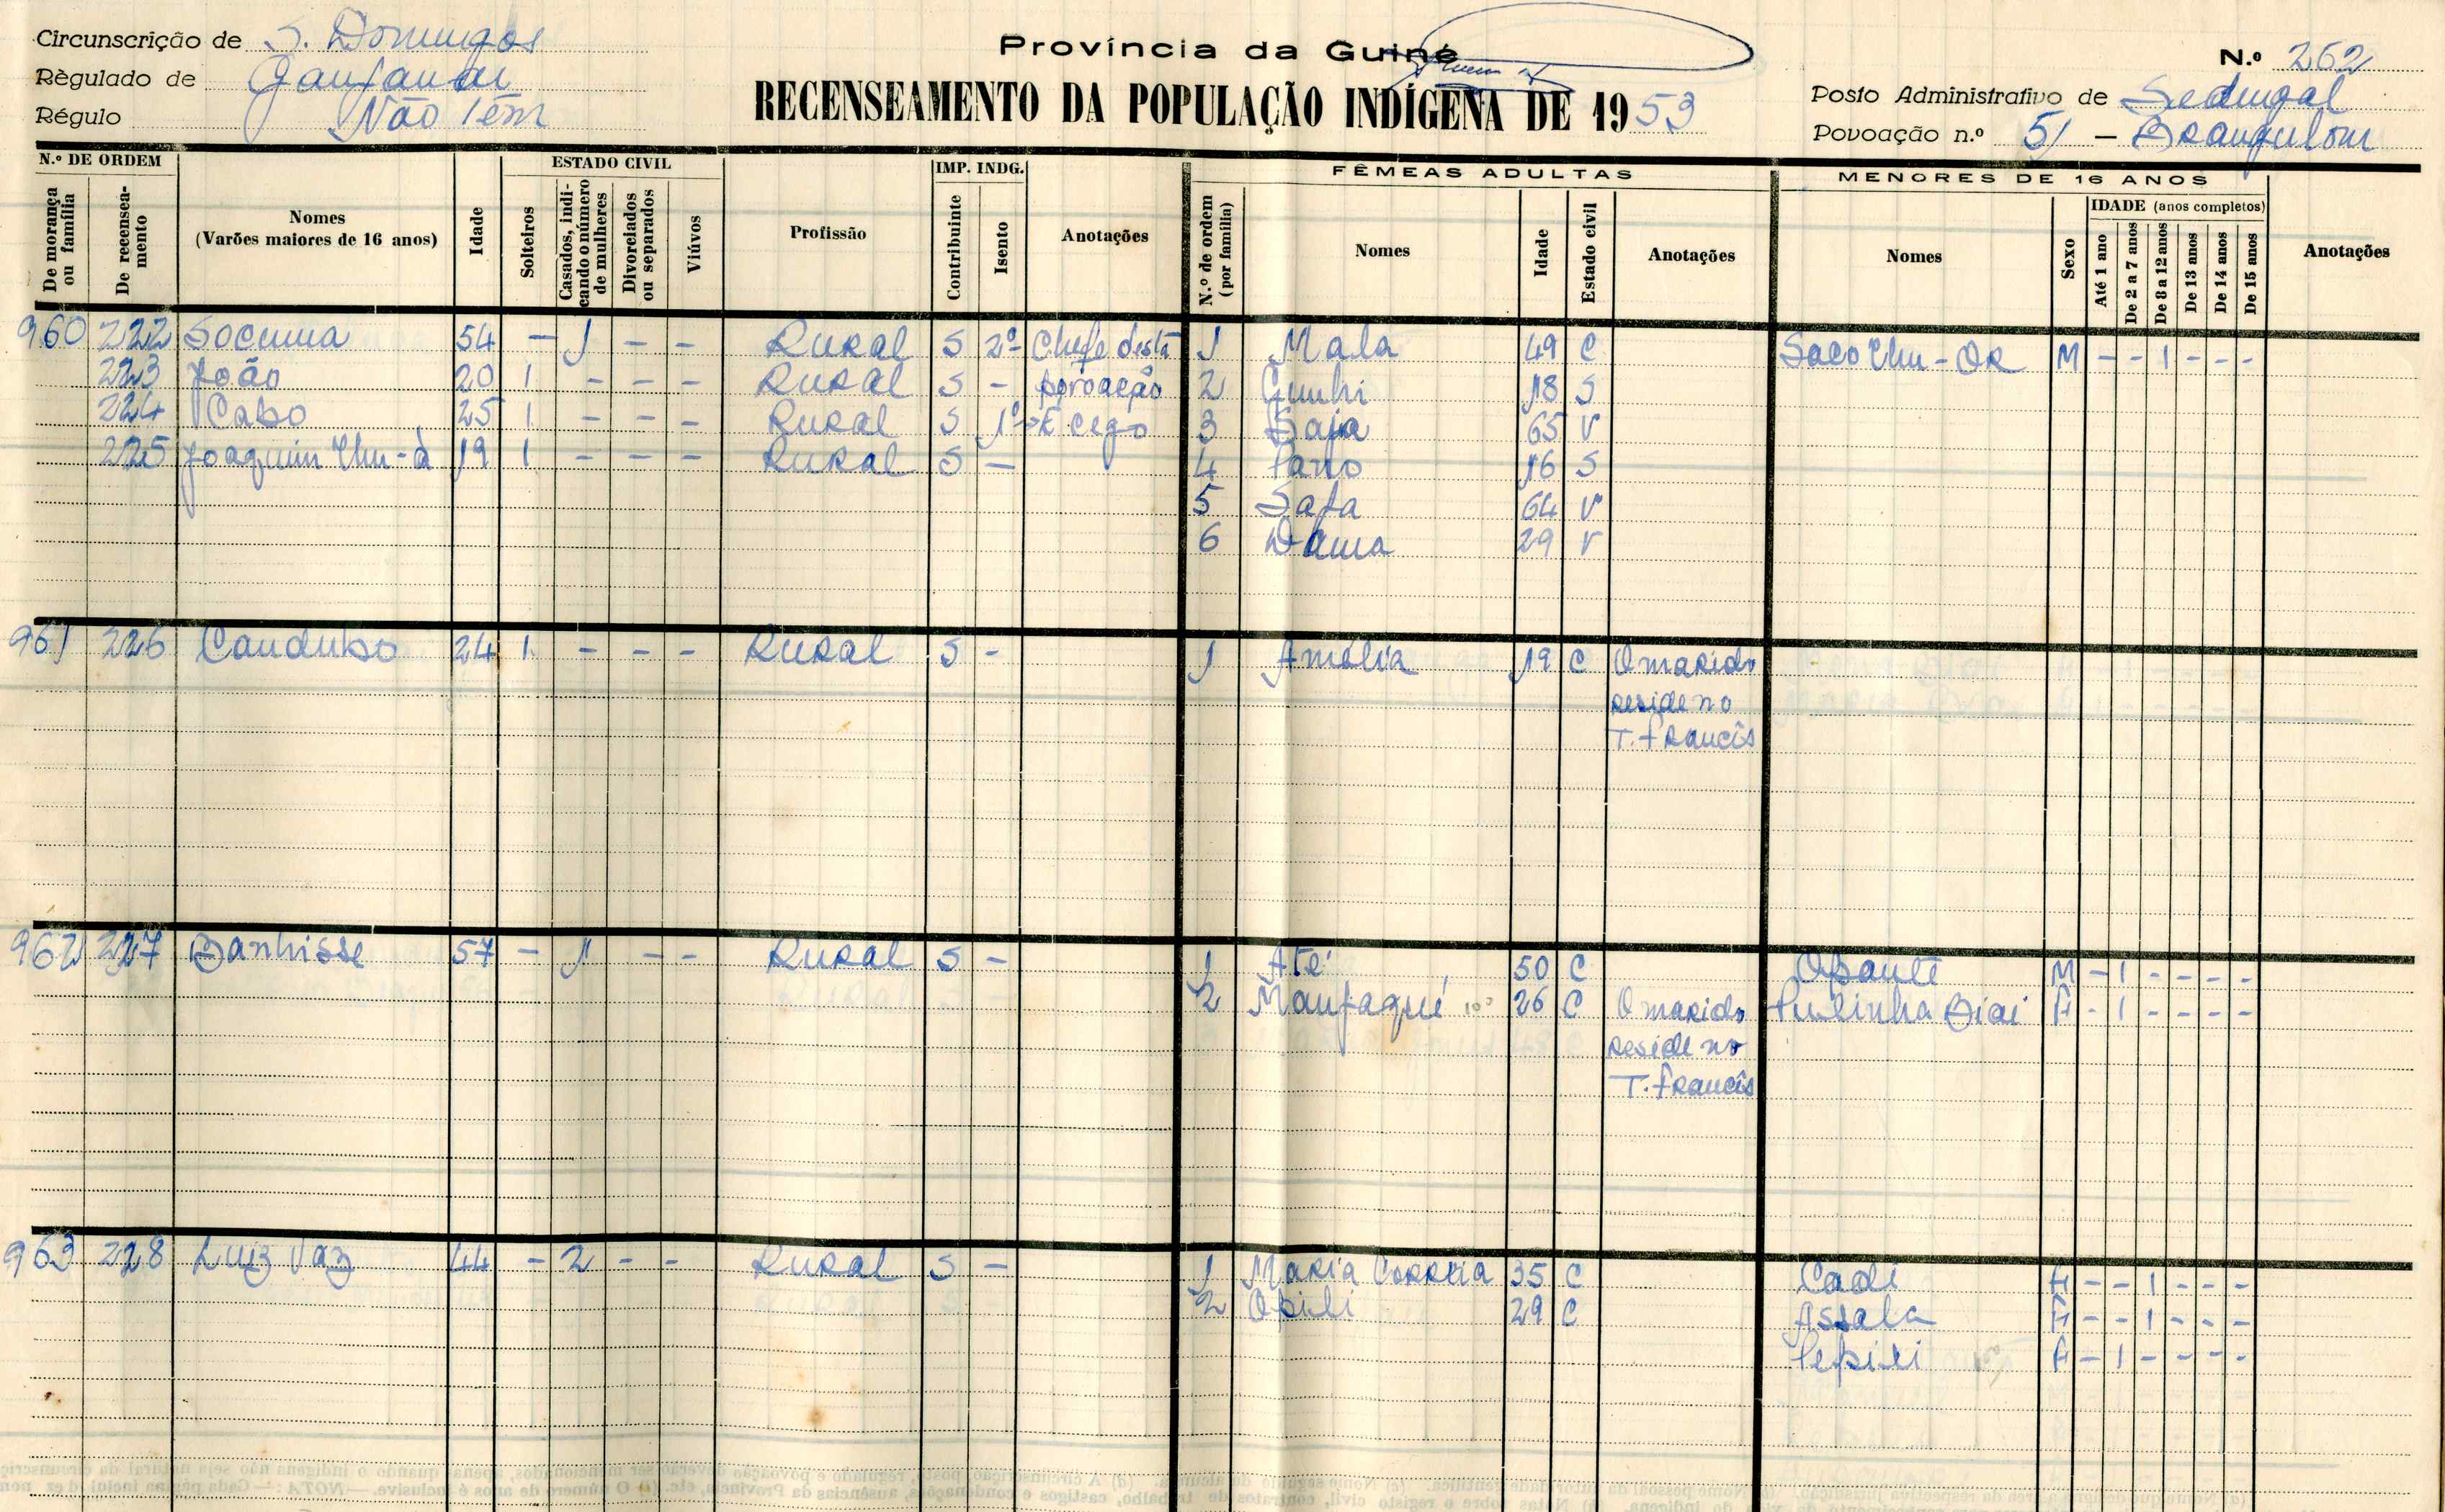 Circunscrição de S. Domingos
Règulado de
Régulo Não Têm
Província da Guiné
RECENSEAMENTO DA POPULAÇÃO INDÍGENA DE 1953
N.º 262
Posto Administrativo de Sedengal
Povoação n.º 51 -
N.º DE ORDEM
De morança ou família
De recenseamento
Nomes
(Varões maiores de 16 anos)
Idade
ESTADO CIVIL
Solteiros
Casados, indicando o número de mulheres
Divorciados ou separados
Viúvos
Profissão
IMP. INDG.
Contribuinte
Isento
Anotações
FÊMEAS ADULTAS
N.º de ordem (por família)
Nomes
Idade
Estado civil
Anotações
MENORES DE 16 ANOS
Nomes
Sexo
IDADE (anos completos)
Até 1 ano
De 2 a 7 anos
De 8 a 12 anos
De 13 anos
De 14 anos
De 15 anos
Anotações
960 222 54 - 1 - - Rural S 2º Chefe desta 1 Mala 49 C M - - 1 - - -
223 João 20 1 - - - Rural S - povoação 2 18 S
224 Cabo 25 1 - - - Rural S 1º É cego 3 65 V
225 Joaquim 19 1 - - - Rural S - 4 16 S
5 64 V
6 29 V
961 226 24 1 - - - Rural S - 1 Amélia 19 C O marido
reside no
T. francês
962 227 Banhisse 57 - 1 - - Rural S - 1 Até 50 C M - 1 - - - -
2 26 C O marido F - 1 - - - -
reside no
T. francês
963 228 Luiz Vaz 44 - 2 - - Rural S - 1 Maria Correia 35 C Cadi F - - 1 - - -
2 29 C Assala F - - 1 - - -
F - 1 - - - -